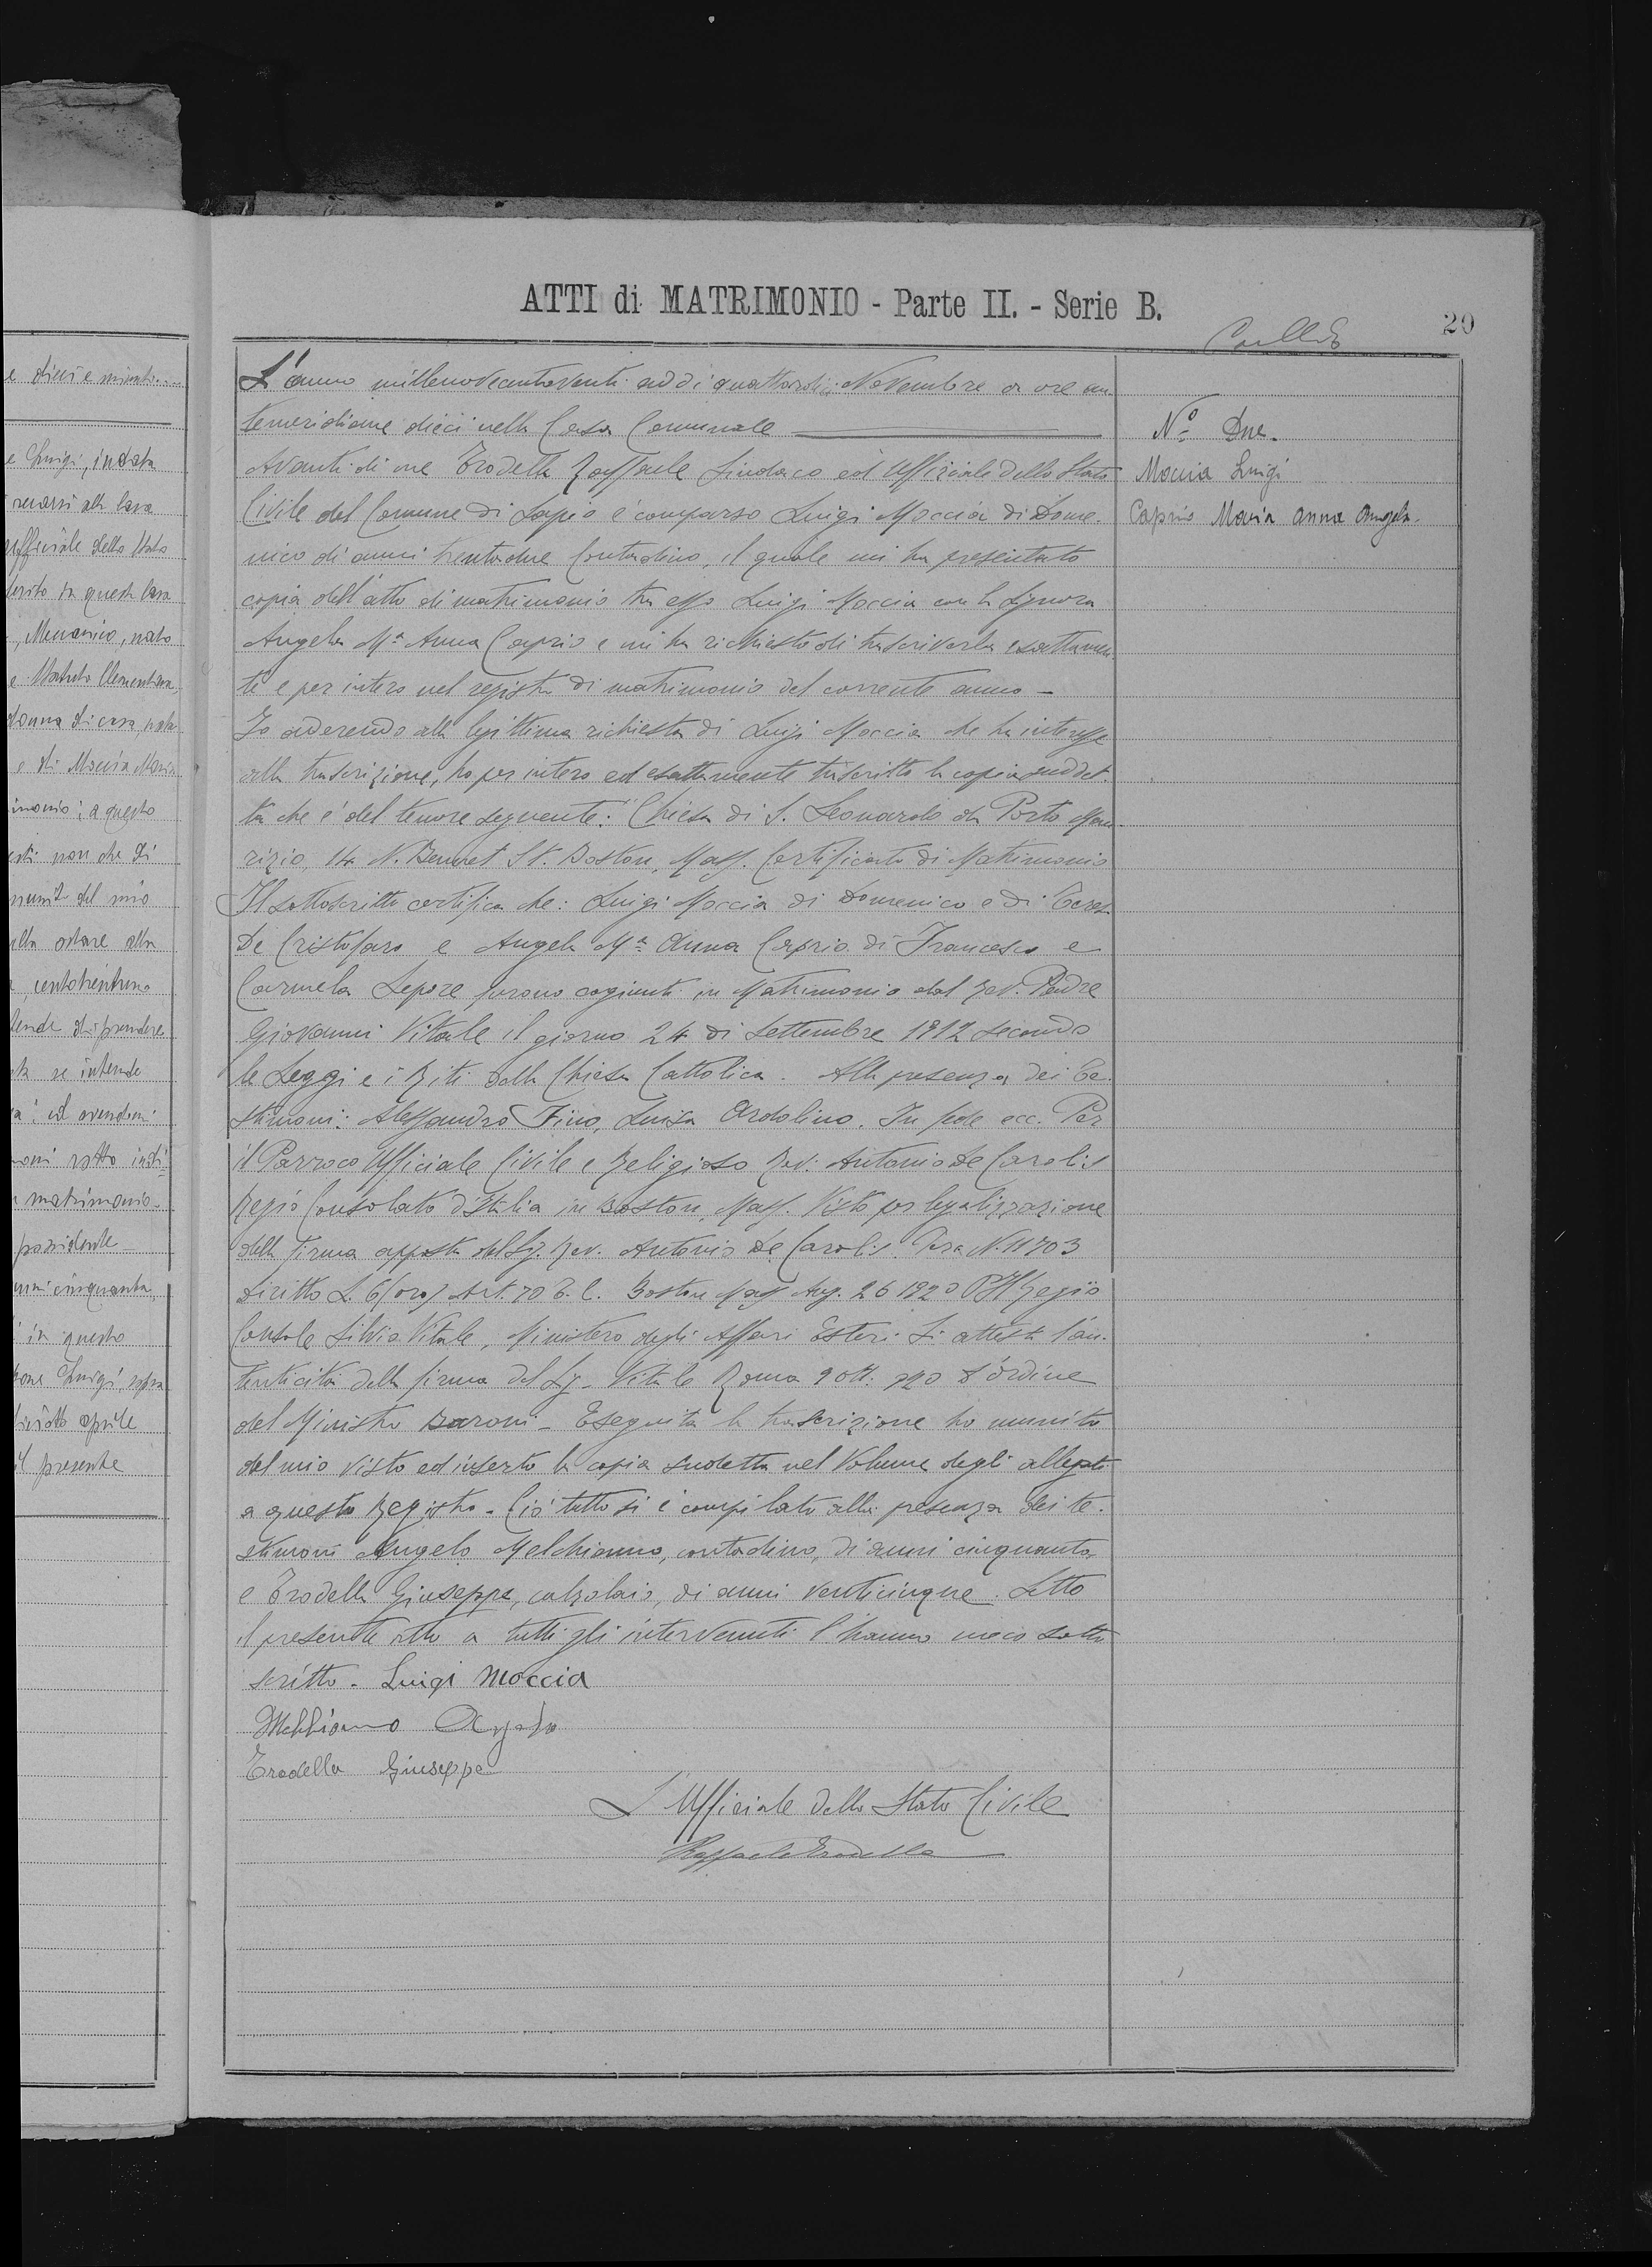 ATTI di MATRIMONIO - Parte II. - Serie B.
20
L'anno millenovecentoventi addi quattordici Novembre a ore an-
temeridiane dieci nella Casa Comunale
Avanti di me Trodella Raffaele Sindaco ed Uffiziale dello Stato
Civile del Comune di Lapio è comparso Luigi Moccia di Dome-
nico di anni trentadue Contadino, il quale mi ha presentato
copia dell'atto di matrimonio tra esso Luigi Moccia con la Signora
Angela Mª Anna Caprio e mi ha richiesto di trascriverla esattamen-
te e per intero nel registro di matrimonio del corrente anno -
Io aderendo alla legittima richiesta di Luigi Moccia che ha interesse
alla trascrizione, ho per intero ed esattamente trascritto la copia suddet-
ta che è del tenore seguente: "Chiesa di S. Leonardo da Porto Mau-
rizio, 14 N. Bennet St. Boston, Mass. Certificato di Matrimonio
Il sottoscritto certifica che: Luigi Moccia di Domenico e di Teresa
De Cristofaro e Angela Mª Anna Caprio di Francesco e
Carmela Lepore furono cogiunti in Matrimonio dal Rev. Padre
Giovanni Vitale il giorno 24 di Settembre 1912 secondo
le Leggi e i Riti della Chiesa Cattolica. Alla presenza dei Te-
stimoni: Alessandro Fino, Luisa Ardolino. In fede ecc. Per
il Parroco Ufficiale Civile e Religioso Rev. Antonio De Carolis
Regio Consolato d'Italia in Boston, Mass. Visto per legalizzazione
della firma apposta del Sig. Rev. Antonio De Carolis. N. 11703
Diritto L. 6 (oro) Art. 70 T. C. Boston Mass Aug. 26 1920 Il Regio
Console Silvio Vitale, Ministero degli Affari Esteri Si attesta l'au-
tenticità della firma del Sig. Vitale Roma 9 ott. 920 d'ordine
del Ministro Baroni - Eseguita la trascrizione ho munito
del mio visto ed inserto la copia sudetta nel Volume degli allegati
a questo Registro - Ciò tutto si è compilato alla presenza dei te-
stimoni Angelo Melchionno, contadino, di anni cinquanta,
e Trodella Giuseppe, calzolaio, di anni venticinque. Letto
il presente atto a tutti gli intervenuti l'hanno meco sotto
scritto - Luigi Moccia
Angelo
Trodella Giuseppe
L'Ufficiale dello Stato Civile
Raffaele Trodella
Nº Due.
Moccia Luigi
Caprio Maria Anna Angela.
e dieci e minuti
e Luigi, indata
recarsi alla casa
ufficiale dello Stato
questa casa
, Meccanico, nato
e
donna di casa, nata
e di Moccia Maria
imonio; a questo
esti non che di
munite del mio
ulla ostare alla
, centotrentuno
tende di prendere
ta se intende
a: ed avendomi
moni sotto indi-
matrimonio.
possidente
anni cinquanta,
in questo
one Luigi, sopra
aprile
il presente